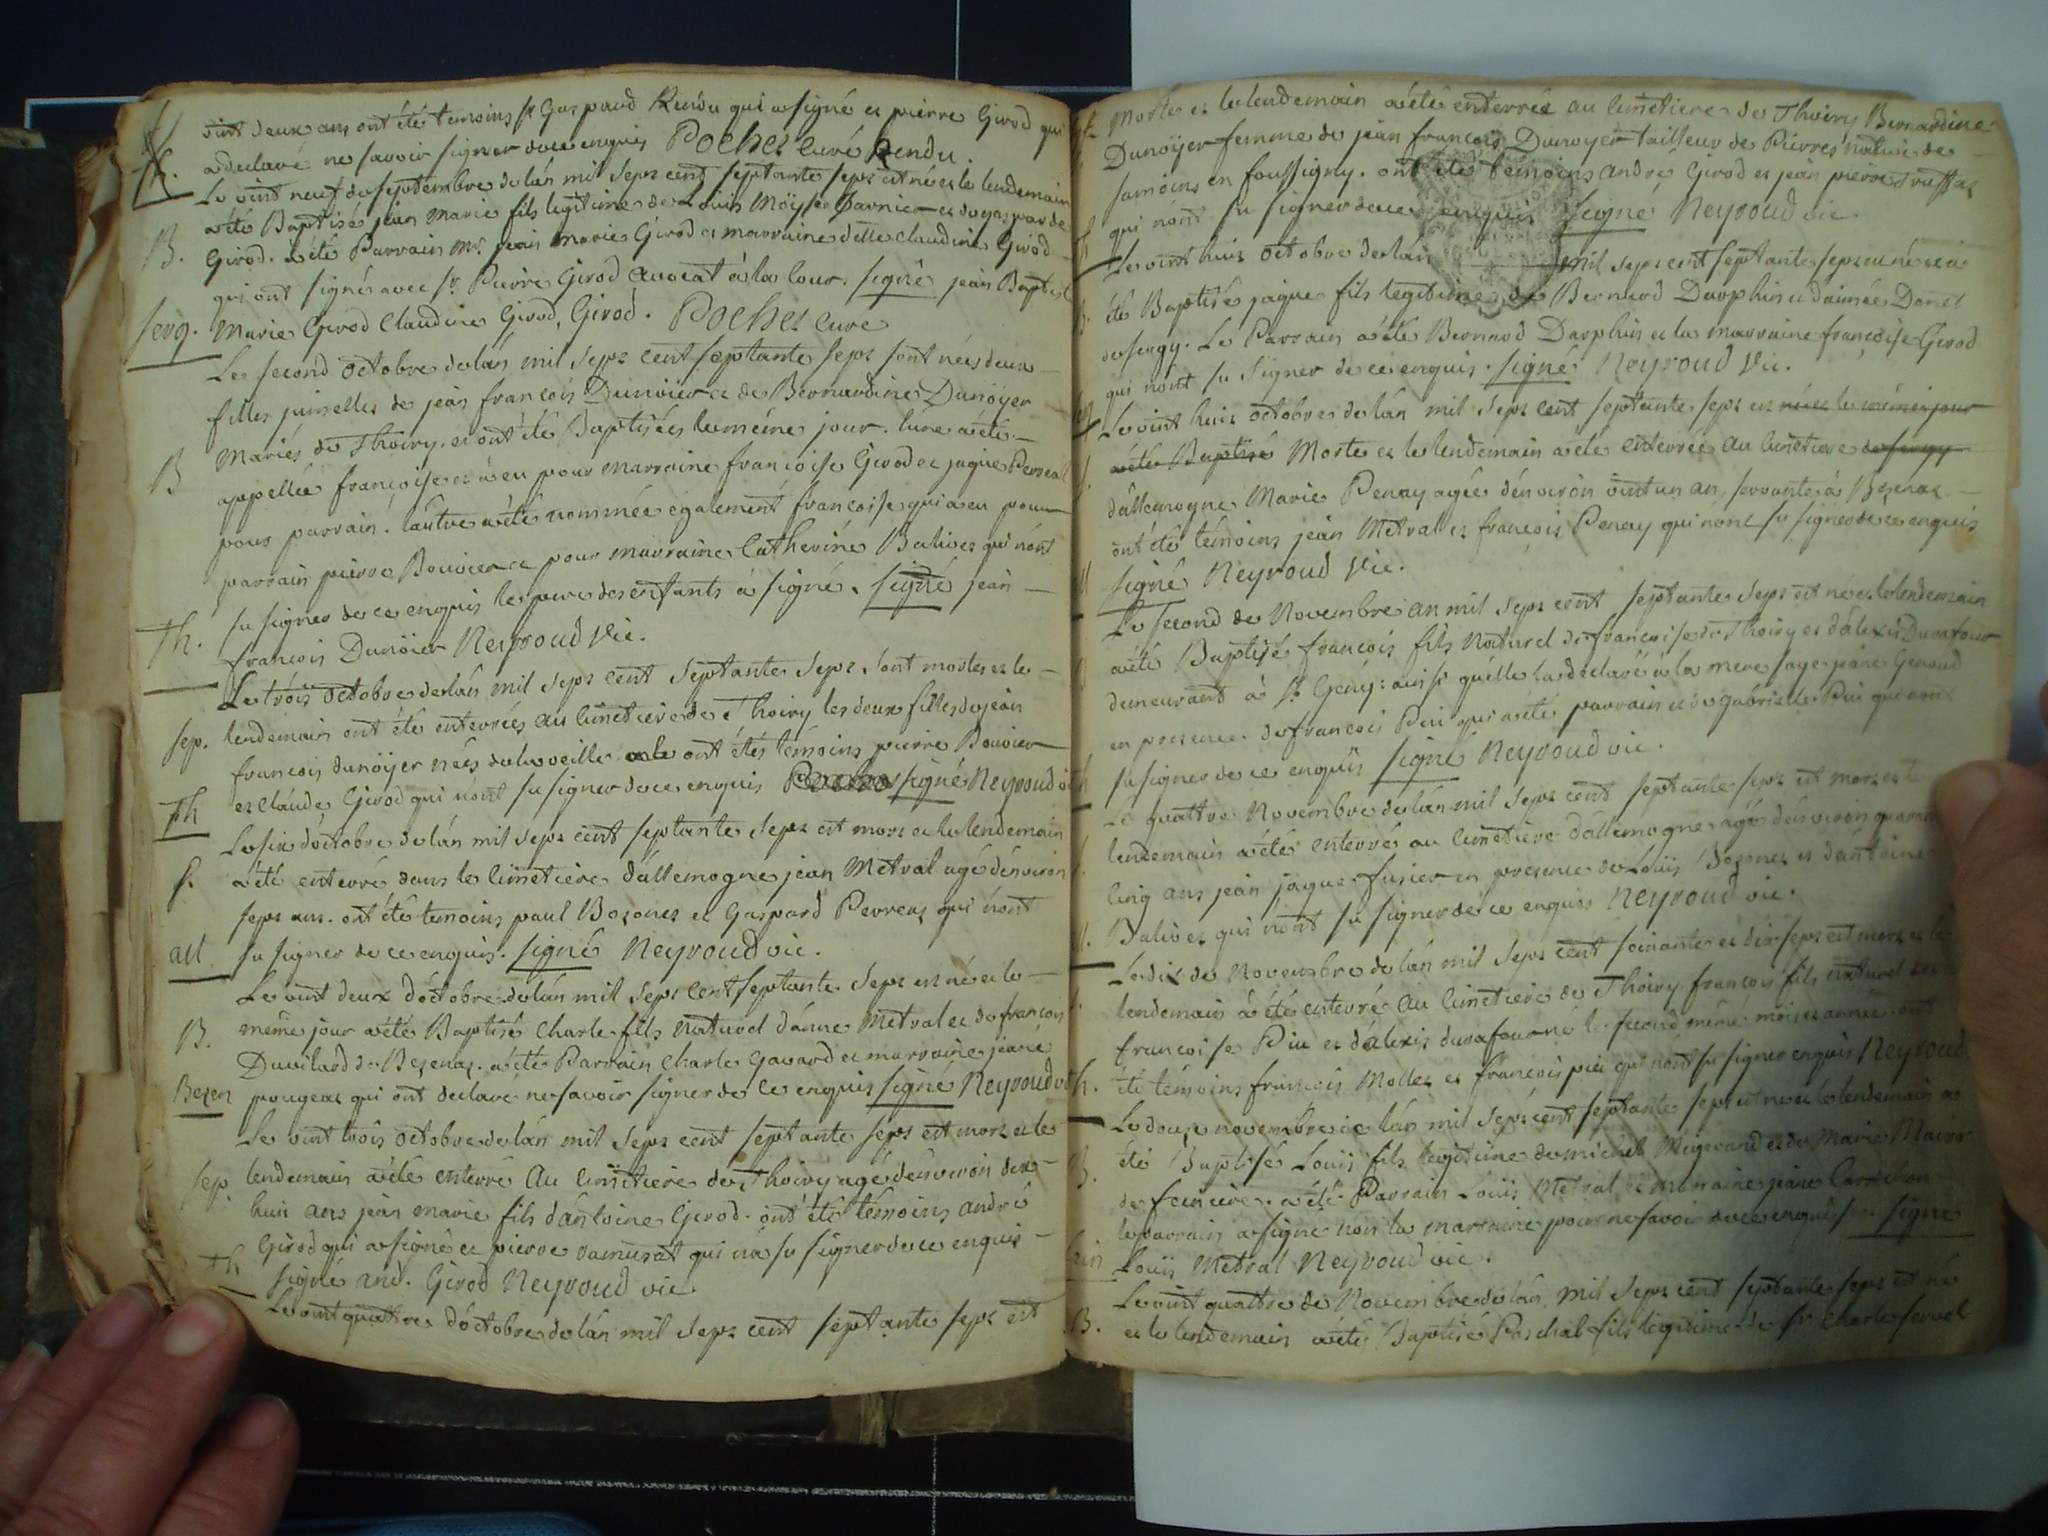 vint deux ans ont été temoins sr Gaspard Rendu qui a signé et pierre Girod qui
Th. a declaré ne savoir signer de ce enquis Pochet curé Rendu.
Le vint neuf de septembre de lán mil sept cent septante sept est né et le lendemain
a été Baptisé jean Marie fils legitime de Loüis Moÿse Garnier et de gasparde
B. Girod. a été Parrain Mr. jean Marie Girod et marraine delle claudine Girod
qui ont signé avec sr Pierre Girod avocat à la Cour. signé jean Baptiste
serg. Marie Girod Claudine Girod, Girod. Pochet curé
Le second octobre de lán mil sept cent septante sept sont nées deux
filles jumelles de jean françois Dunoier et de Bernardine Dunoÿer
Mariés de Thoiry. et ont été Baptisées le méme jour. lune a été
B appellée françoise et a eu pour marraine françoise Girod et jaque Perreal
pour parrain. láutre a été nommée egalement francoise qui a eu pour
parrain pierre Bouvier et pour marraine Catherine Balivet qui nónt
Th. su signer de ce enquis le pere des enfants a signé. signé jean
francois Dunoier Neyroud vic.
Le trois octobre de lán mil sept cent septante sept. sont mortes et le
sep. lendemain ont été enterrées au Cimetiere de Thoiry les deux filles de jean
francois dunoÿer nées de la veille ont étés témoins pierre Bouvier
Th et claude Girod qui nónt su signer de ce enquis signé Neyroud vic
Le six dóctobre de lán mil sept cent septante sept est mort et le lendemain
s. a été enterré dans le Cimetiere dállemogne jean Metral agé dénviron
sept ans. ont été temoins paul Bozonet et Gaspard Perreaz qui nónt
all su signer de ce enquis. signé Neyroud vic.
Le vint deux dóctobre de lán mil sept cent septante sept est né et le
B. même jour a été Baptisé Charle fils naturel dánne Metral et de francois
Duvilard de Bezenaz. a été Parrain Charle Gavard et marraine jeane
Bezen pougeaz qui ont declaré ne savoir signer de ce enquis signé Neyroud vic
Le vint trois octobre de lán mil sept cent septante sept est mort et le
sep. lendemain a été enterré au Cimetiere de Thoiry agé dénviron dix
huit ans jean marie fils dántoine Girod. ont été témoins andré
Girod qui a signé et pierre ramusat qui ná su signer de ce enquis
Th signé and. Girod Neyroud vic
Le vint quattre dóctobre de lán mil sept cent septante sept est
Morte et le lendemain a été enterrée au Cimetiere de Thoiry Bernardine
Dunoÿer femme de jean francois Dunoyer tailleur de Pierres native de
samoins en foussigny. ont été témoins andré Girod et jean pierre
qui nónt su signer de ce enquis signé Neyroud vic.
Le vint huit octobre de lán mil sept cent septante sept est né et a
été Baptisé jaque fils legitime de Bernard Dauphin et daimée Donet
de sergy. Le Parrain a été Bernard Dauphin et la marraine francoise Girod
qui nónt su signer de ce enquis. signé Neyroud vic.
Le vint huit octobre de lán mil sept cent septante sept est née et le même jour
a été Baptisé Morte et le lendemain a été enterrée au Cimetiere de sergy
dállemogne Marie Penay agée dénviron vint un an, servante à Bezenaz
ónt été témoins jean Metral et françois Penay qui nónt su signer de ce enquis
all signé Neyroud vic.
Le second de Novembre an mil sept cent septante sept est né et le lendemain
a été Baptisé francois fils naturel de francoise de Thoiry et dálexis Durafour
demeurant à st Geny: ainsi quélle la declaré à la mere sage jeane Genoud
en presence de francois Piu qui a été parrain et de gabrielle Piu qui nont
su signer de ce enquis signé Neyroud vic.
Le quattre Novembre de lán mil sept cent septante sept est mort et le
lendemain a été enterré au Cimetiere dállemogne agé dénviron quarante
cinq ans jean jaque fusier en presence de Loüis Bozonet et dántoine
Balivet qui nónt su signer de ce enquis Neyroud vic.
Le dix de Novembre de lán mil sept cent soixante et dix sept est mort et le
lendemain a été enterré au Cimetiere de Thoiry francois fils naturel de
francoise Piu et dálexis durafour né le second même mois et année. ont
Th. été témoins françois Mollet et françois piu qui nónt su signer enquis Neyroud
Le douze novembre de lán mil sept cent septante sept est né et le lendemain a
B. été Baptisé Loüis fils legitime de michel Meigerand et de Marie Maire
de feniere. a été Parrain Loüis Metral et marraine jeane
le parrain a signé non la marraine pour ne savoir de ce enquise. signé
Loüis Metral Neyroud vic.
Le vint quattre de Novembre de lán mil sept cent septante sept est né
B. et le lendemain a été Baptisé Paschal fils legitime de sr Charle fervel